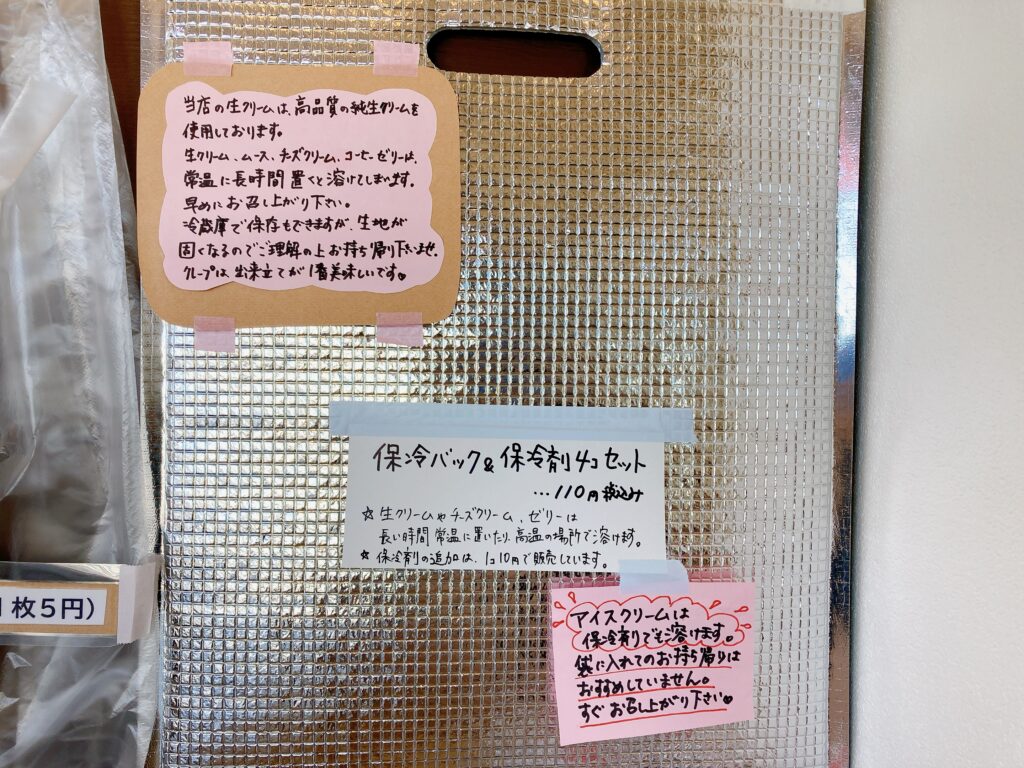 当店の生クリームは、高品質の純生クリームを
使用しております。
生クリーム、ムース、チーズクリーム、コーヒーゼリーは、
常温に長時間置くと溶けてしまいます。
早めにお召し上がり下さい。
冷蔵庫で保存もできますが、生地が
固くなるのでご理解の上お持ち帰り下さいませ。
クレープは、出来立てが1番美味しいです♡
保冷バック&保冷剤4コセット
…110円税込み
☆生クリームやチーズクリーム、ゼリーは
長い時間常温に置いたり、高温の場所で溶けます。
★保冷剤の追加は、1コ10円で販売しています。
枚5円)
アイスクリームは
保冷剤でも溶けます。
袋に入れてのお持ち帰りは
おすすめしていません。
すぐお召し上がり下さい♡